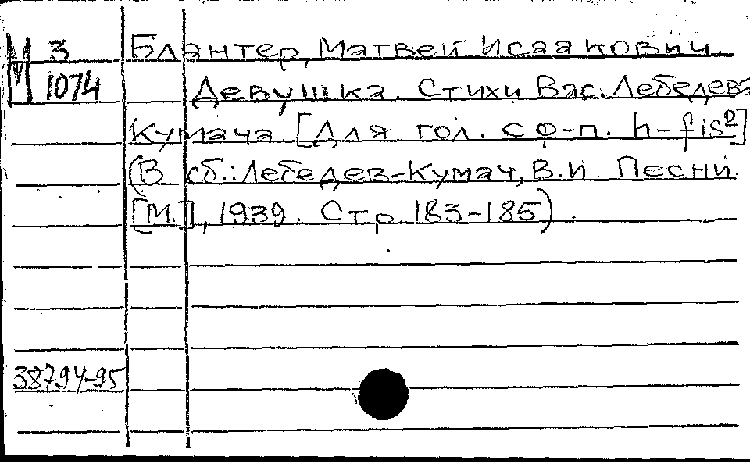 М 3 Блантер, Матвей Исаакович.
1074 Девушка. Стихи Вас. Лебедева-
Кумача [Для гол. с ф-п. h-fis²]
(В сб.: Лебедев-Кумач, В.И. Песни.
[М.], 1939. Стр. 183-185).
38794-95